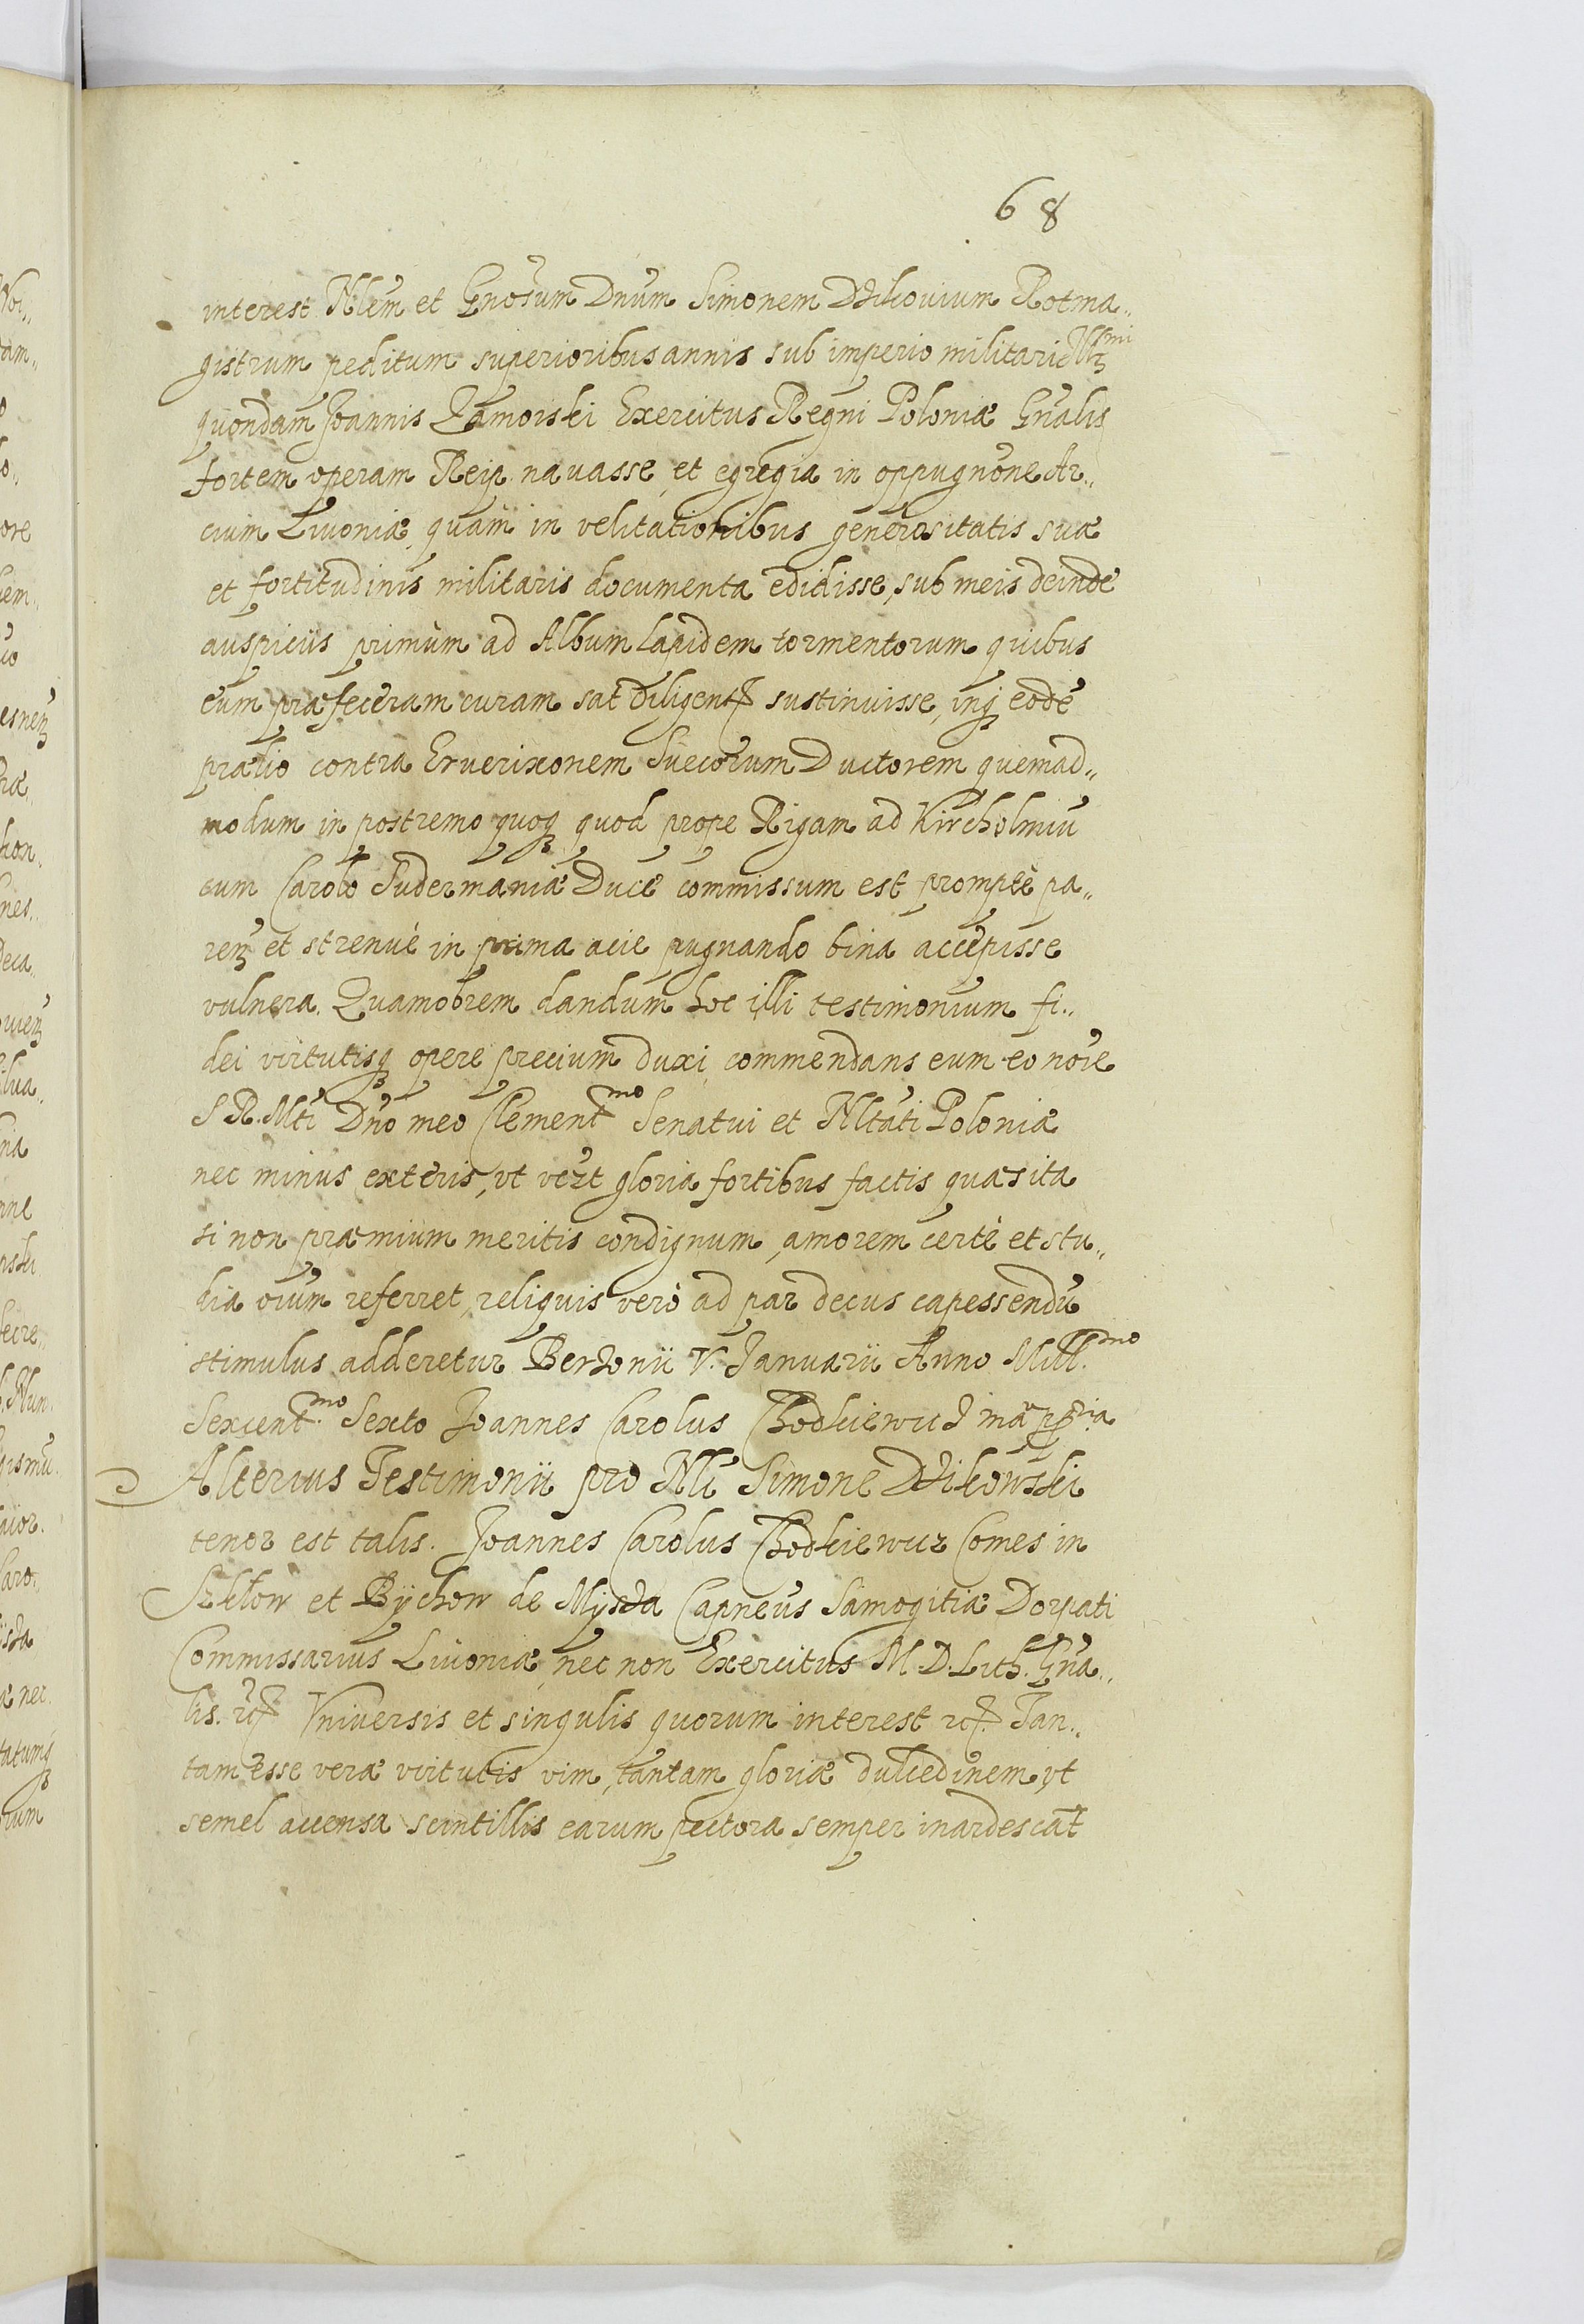 68
interest Nlem et Gnosum Dnum Simonem Dzikovium Rotma„
gistrum peditum superioribus annis sub imperio militari Illmi
quondam Joannis Zamoiski Exercitus Regni Poloniæ Gnalis
fortem operam Reip. navasse, et egregia in oppugnone Ar„
cium Livoniæ, quam in velitationibus generositatis suæ
et fortitudinis militaris documenta edidisse, sub meis deinde
auspiciis primùm ad Album lapidem tormentorum quibus
eum præfeceram curam sat diligentr sustinuisse, inq eode
prælio contra Erverixonem Suecorum Ductorem quemad„
modum in postremo quoq quod prope Rigam ad Kircholmiu
cum Carolo Sudermaniæ Duce commissum est promptè pa„
rem et strenuè in prima acie pugnando bina accepisse
vulnera. Quamobrem dandum hoc illi testimonium fi„
dei virtutisq opere precium duxi, commendans eum eo noie
S R. Mti Dno meo Clementmo Senatui et Nltati Poloniæ
nec minus exteris, vt vert gloria fortibus factis quæsita
si non præmium meritis condignum, amorem certè et stu„
dia oium referret, reliquis verò ad par decus capessendu
stimulus adderetur Berzonii V. Januarii Anno Mill.mo
Sexcent.mo Sexto Joannes Carolus Chodkiewicz ma ppria
Alterius Testimonii pro Nli Simone Dzikowski
tenor est talis. Joannes Carolus Chodkiewicz Comes in
Szklow et Bychow de Myszda Capneus Samogitiæ Dorpati
Commissarius Livoniæ, nec non Exercitus M. D. Lith. Gna„
lis. etc Vniversis et singulis quorum interest etc. Tan„
tam esse veræ virtutis vim, tantam gloriæ dulcedinem, vt
semel accensa scintillis earum pectora semper inardescat